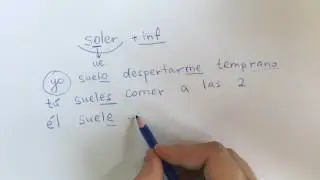 soler + inf
ue
yo suelo despertarme temprano
tú sueles comer a las 2
él suele